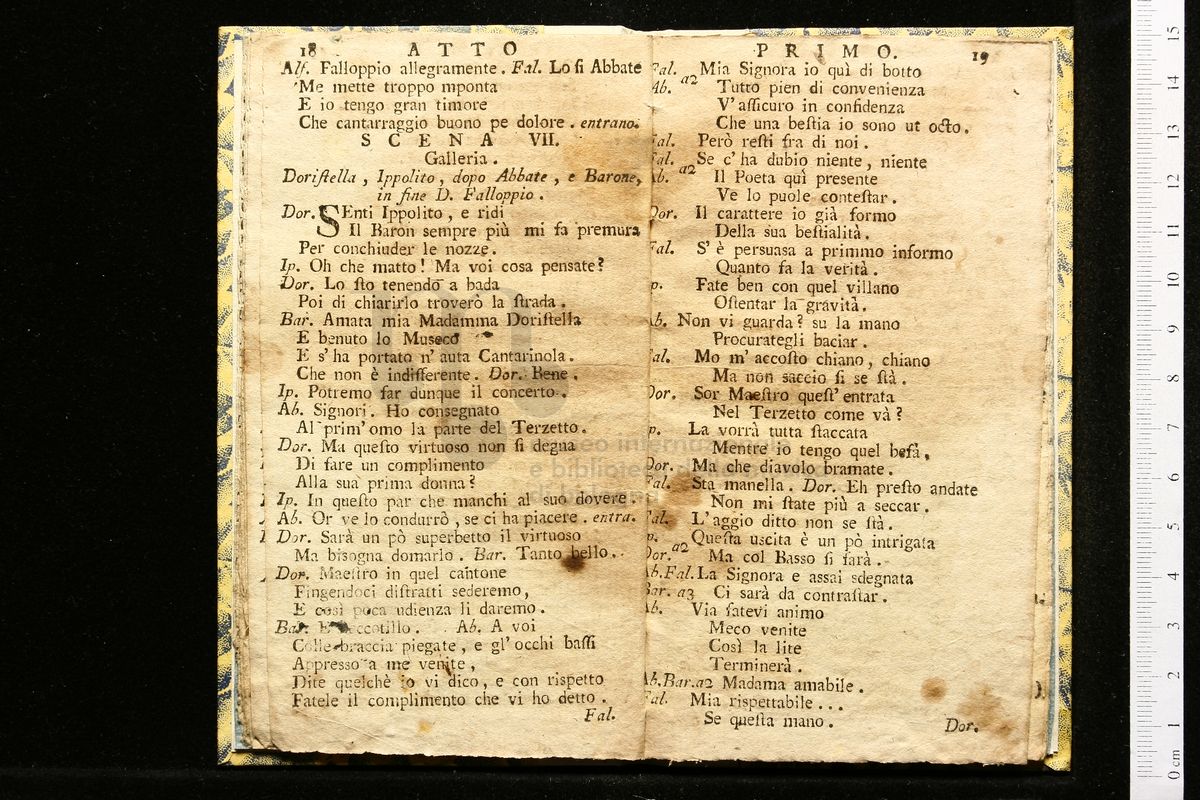 18 ATTO
Alf. Falloppio allegramente. Fal. Lo ſi Abbate
Me mette troppo mponta
E io tengo gran timore
Che cantarraggio buono pe dolore. entrano.
SCENA VII.
Galleria.
Doriſtella, Ippolito, dopo Abbate, e Barone,
in fine D. Falloppio.
Dor. SEnti Ippolito, e ridi
Il Baron sempre più mi fa premura
Per conchiuder le nozze.
Ip. Oh che matto! Ma voi cosa pensate?
Dor. Lo ſto tenendo a bada
Poi di chiarirlo troverò la ſtrada.
Bar. Amata mia Madamma Doriſtella
E benuto lo Museco
E s'ha portato n'auta Cantarinola.
Che non è indifferente. Dor. Bene.
Ip. Potremo far dunque il concerto.
Ab. Signori. Ho consegnato
Al prim'omo la parte del Terzetto.
Dor. Ma queſto virtuoso non ſi degna
Di fare un complimento
Alla sua prima donna?
Ip. In queſto par che manchi al suo dovere.
Ab. Or ve lo condurrò, se ci ha piacere. entra.
Dor. Sarà un pò superbetto il virtuoso
Ma bisogna domarlo. Bar. Tanto bello.
Dor. Maeſtro in quel cantone
Fingendoci diſtratti sederemo,
E così poca udienza li daremo.
Bar. Ab. A voi
Colle braccia piegate, e gl'occhi baſſi
Appresso a me venite,
Dite quelchè io vi dico, e con rispetto
Fatele il complimento che vi ho detto.
Fal.
PRIMO. 19
Fal. Mia Signora io quì di botto
Ab. a2 Tutto pien di convenienza
V'aſſicuro in confidenza
Che una beſtia io sono ut octo.
Fal. Però reſti fra di noi.
Fal. Se c'ha dubio niente, niente
Ab. a2 Il Poeta quì presente
Ve lo puole conteſtar.
Dor. Il carattere io già formo
Della sua beſtialità.
Fal. S'è persuasa a primmo informo
Quanto fa la verità.
Ip. Fate ben con quel villano
Oſtentar la gravità.
Ab. Non vi guarda? su la mano
Procurategli baciar.
Fal. Mo m'accoſto chiano, chiano
Ma non saccio ſi se ſtà.
Dor. Sor Maeſtro queſt'entrata
Nel Terzetto come và?
Ip. La vorrà tutta ſtaccata
Mentre io tengo quel befà,
Dor. Ma che diavolo bramate.
Fal. Sta manella. Dor. Eh preſto andate
Non mi ſtate più a seccar.
Fal. L'aggio ditto non se ſtà.
Ip. Queſta uscita è un pò intrigata
Dor. a2 Ma col Basso ſi farà.
Ab. Fal. La Signora e assai sdegnata
Bar. a3 Ci sarà da contraſtar.
Ab. Via fatevi animo
Meco venite
Così la lite
Terminerà.
Ab. Bar. a2 Madama amabile.
Fal. Mia rispettabile...
Se queſta mano.
Dor.
15
14
13
12
11
10
9
8
7
6
5
4
3
2
1
0 cm